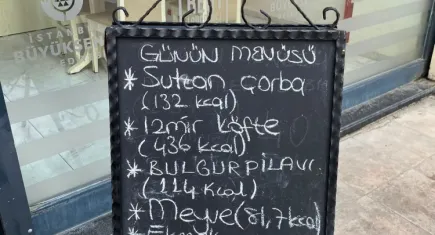 İSTANBUL
BÜYÜKŞE
GÜNÜN MENÜSÜ
* Sultan çorba
(132 kcal)
* Izmir köfte
(436 kcal)
* BULGUR PİLAVI
(114 Kcal)
* Meyve (81,7 kcal)
* Ekmek